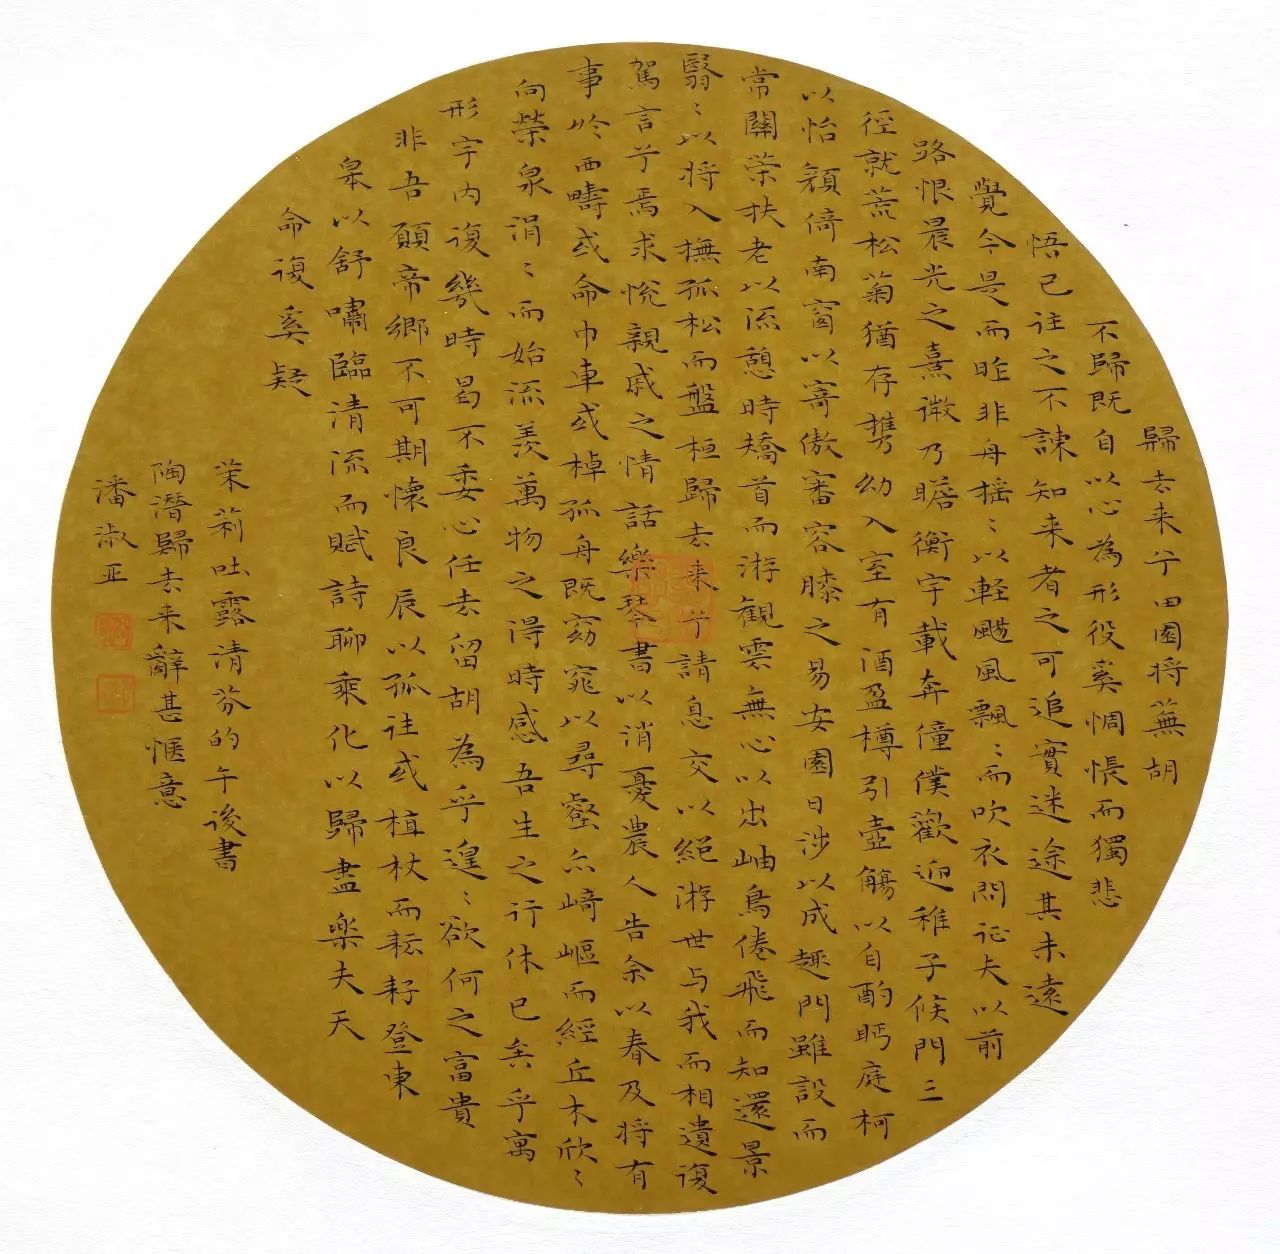 歸去来兮田園将蕪胡
不歸既自以心為形役奚惆悵而獨悲
悟已往之不諫知来者之可追實迷途其未遠
覺今是而昨非舟摇〻以軽颺風飄〻而吹衣問征夫以前
路恨晨光之熹微乃瞻衡宇載奔僮僕歡迎稚子候門三
徑就荒松菊猶存携幼入室有酒盈樽引壺觴以自酌眄庭柯
以怡顔倚南窗以寄傲審容膝之易安園日涉以成趣門雖設而
常關策扶老以流憩時矯首而游観雲無心以出岫鳥倦飛而知還景
翳〻以将入撫孤松而盤桓歸去来兮請息交以絕游世与我而相遺復
駕言兮焉求悅親戚之情話樂琴書以消憂農人告余以春及将有
事於西疇或命巾車或棹孤舟既窈窕以尋壑亦崎嶇而經丘木欣〻
向榮泉涓〻而始流羨萬物之得時感吾生之行休已矣乎寓
形宇内復幾時曷不委心任去留胡為乎遑〻欲何之富貴
非吾願帝鄉不可期懷良辰以孤往或植杖而耘耔登東
皋以舒嘯臨清流而賦詩聊乘化以歸盡楽夫天
命復奚疑
茉莉吐露清芬的午後書
陶潛歸去来辭甚愜意
潘淑亚